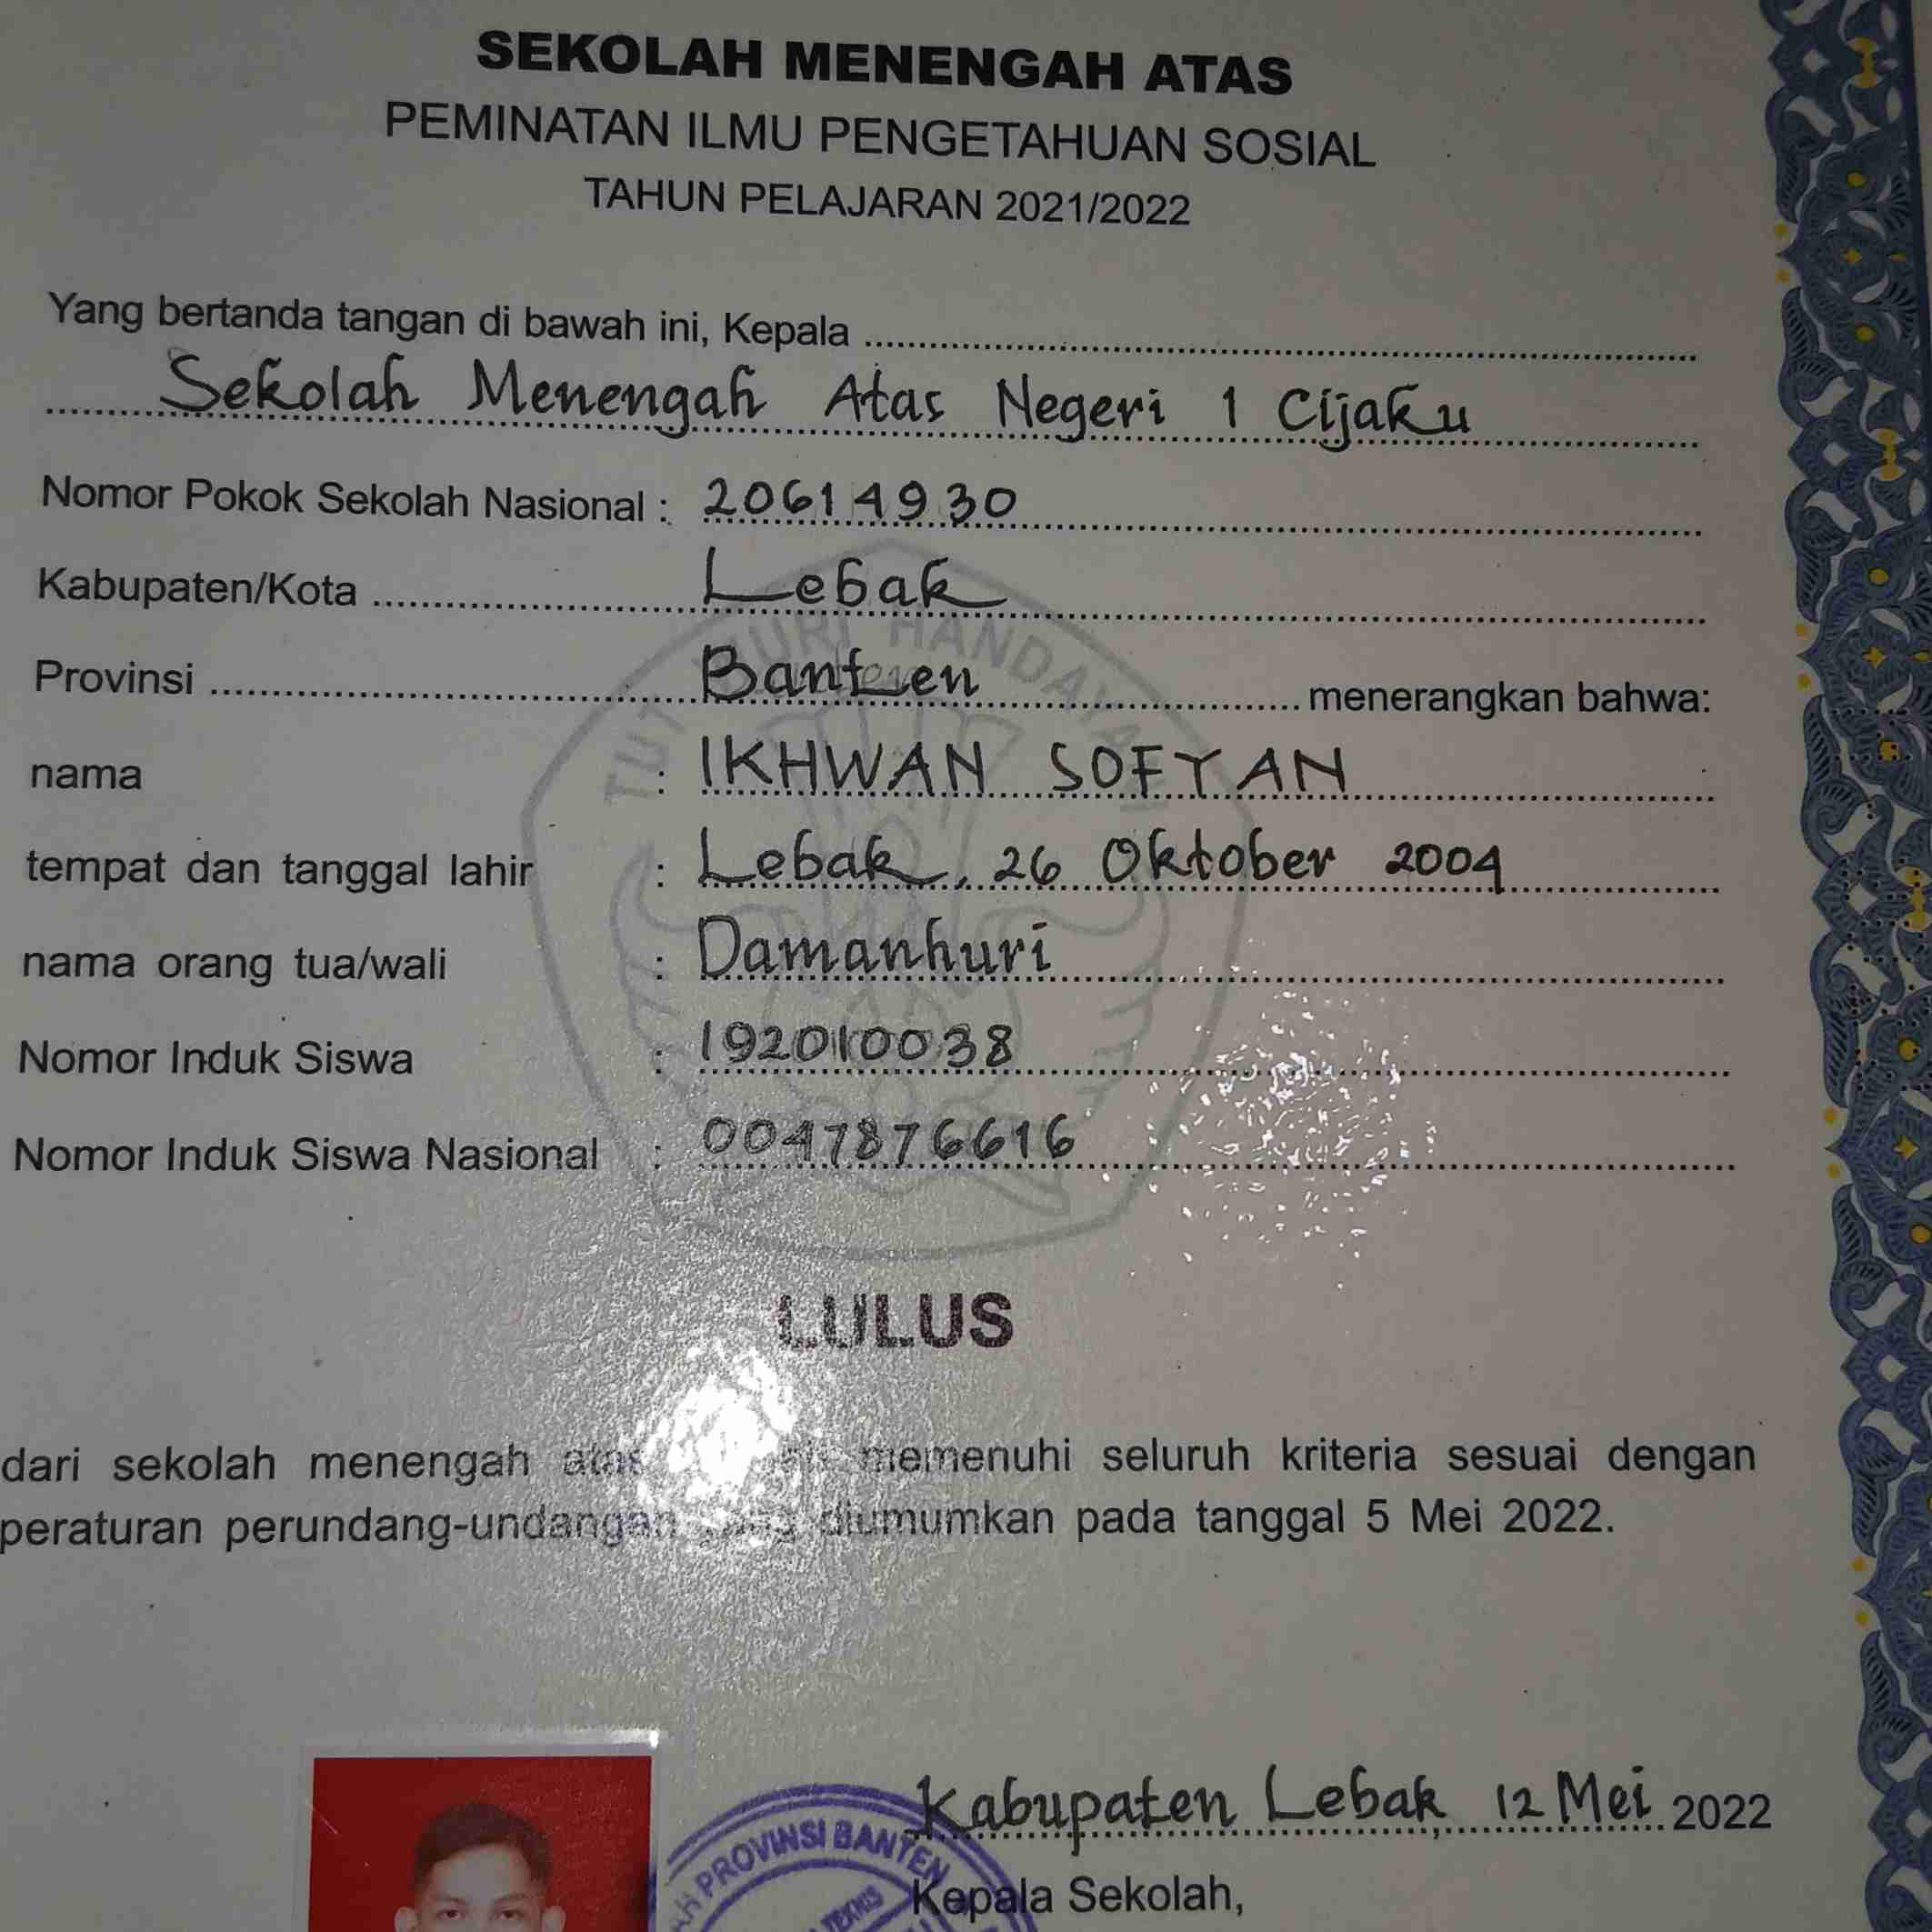 SEKOLAH MENENGAH ATAS
PEMINATAN ILMU PENGETAHUAN SOSIAL
TAHUN PELAJARAN 2021/2022
Yang bertanda tangan di bawah ini, Kepala
Sekolah Menengah Atas Negeri 1 Cijaku
Nomor Pokok Sekolah Nasional : 20614930
Kabupaten/Kota Lebak
Provinsi Banten menerangkan bahwa:
nama : IKHWAN SOFYAN
tempat dan tanggal lahir : Lebak, 26 Oktober 2004
nama orang tua/wali : Damanhuri
Nomor Induk Siswa : 192010038
Nomor Induk Siswa Nasional : 0047876616
TUT WURI HANDAYANI
LULUS
dari sekolah menengah atas memenuhi seluruh kriteria sesuai dengan
peraturan perundang-undangan yang diumumkan pada tanggal 5 Mei 2022.
Kabupaten Lebak, 12 Mei 2022
Kepala Sekolah,
PROVINSI BANTEN
TEKNIS